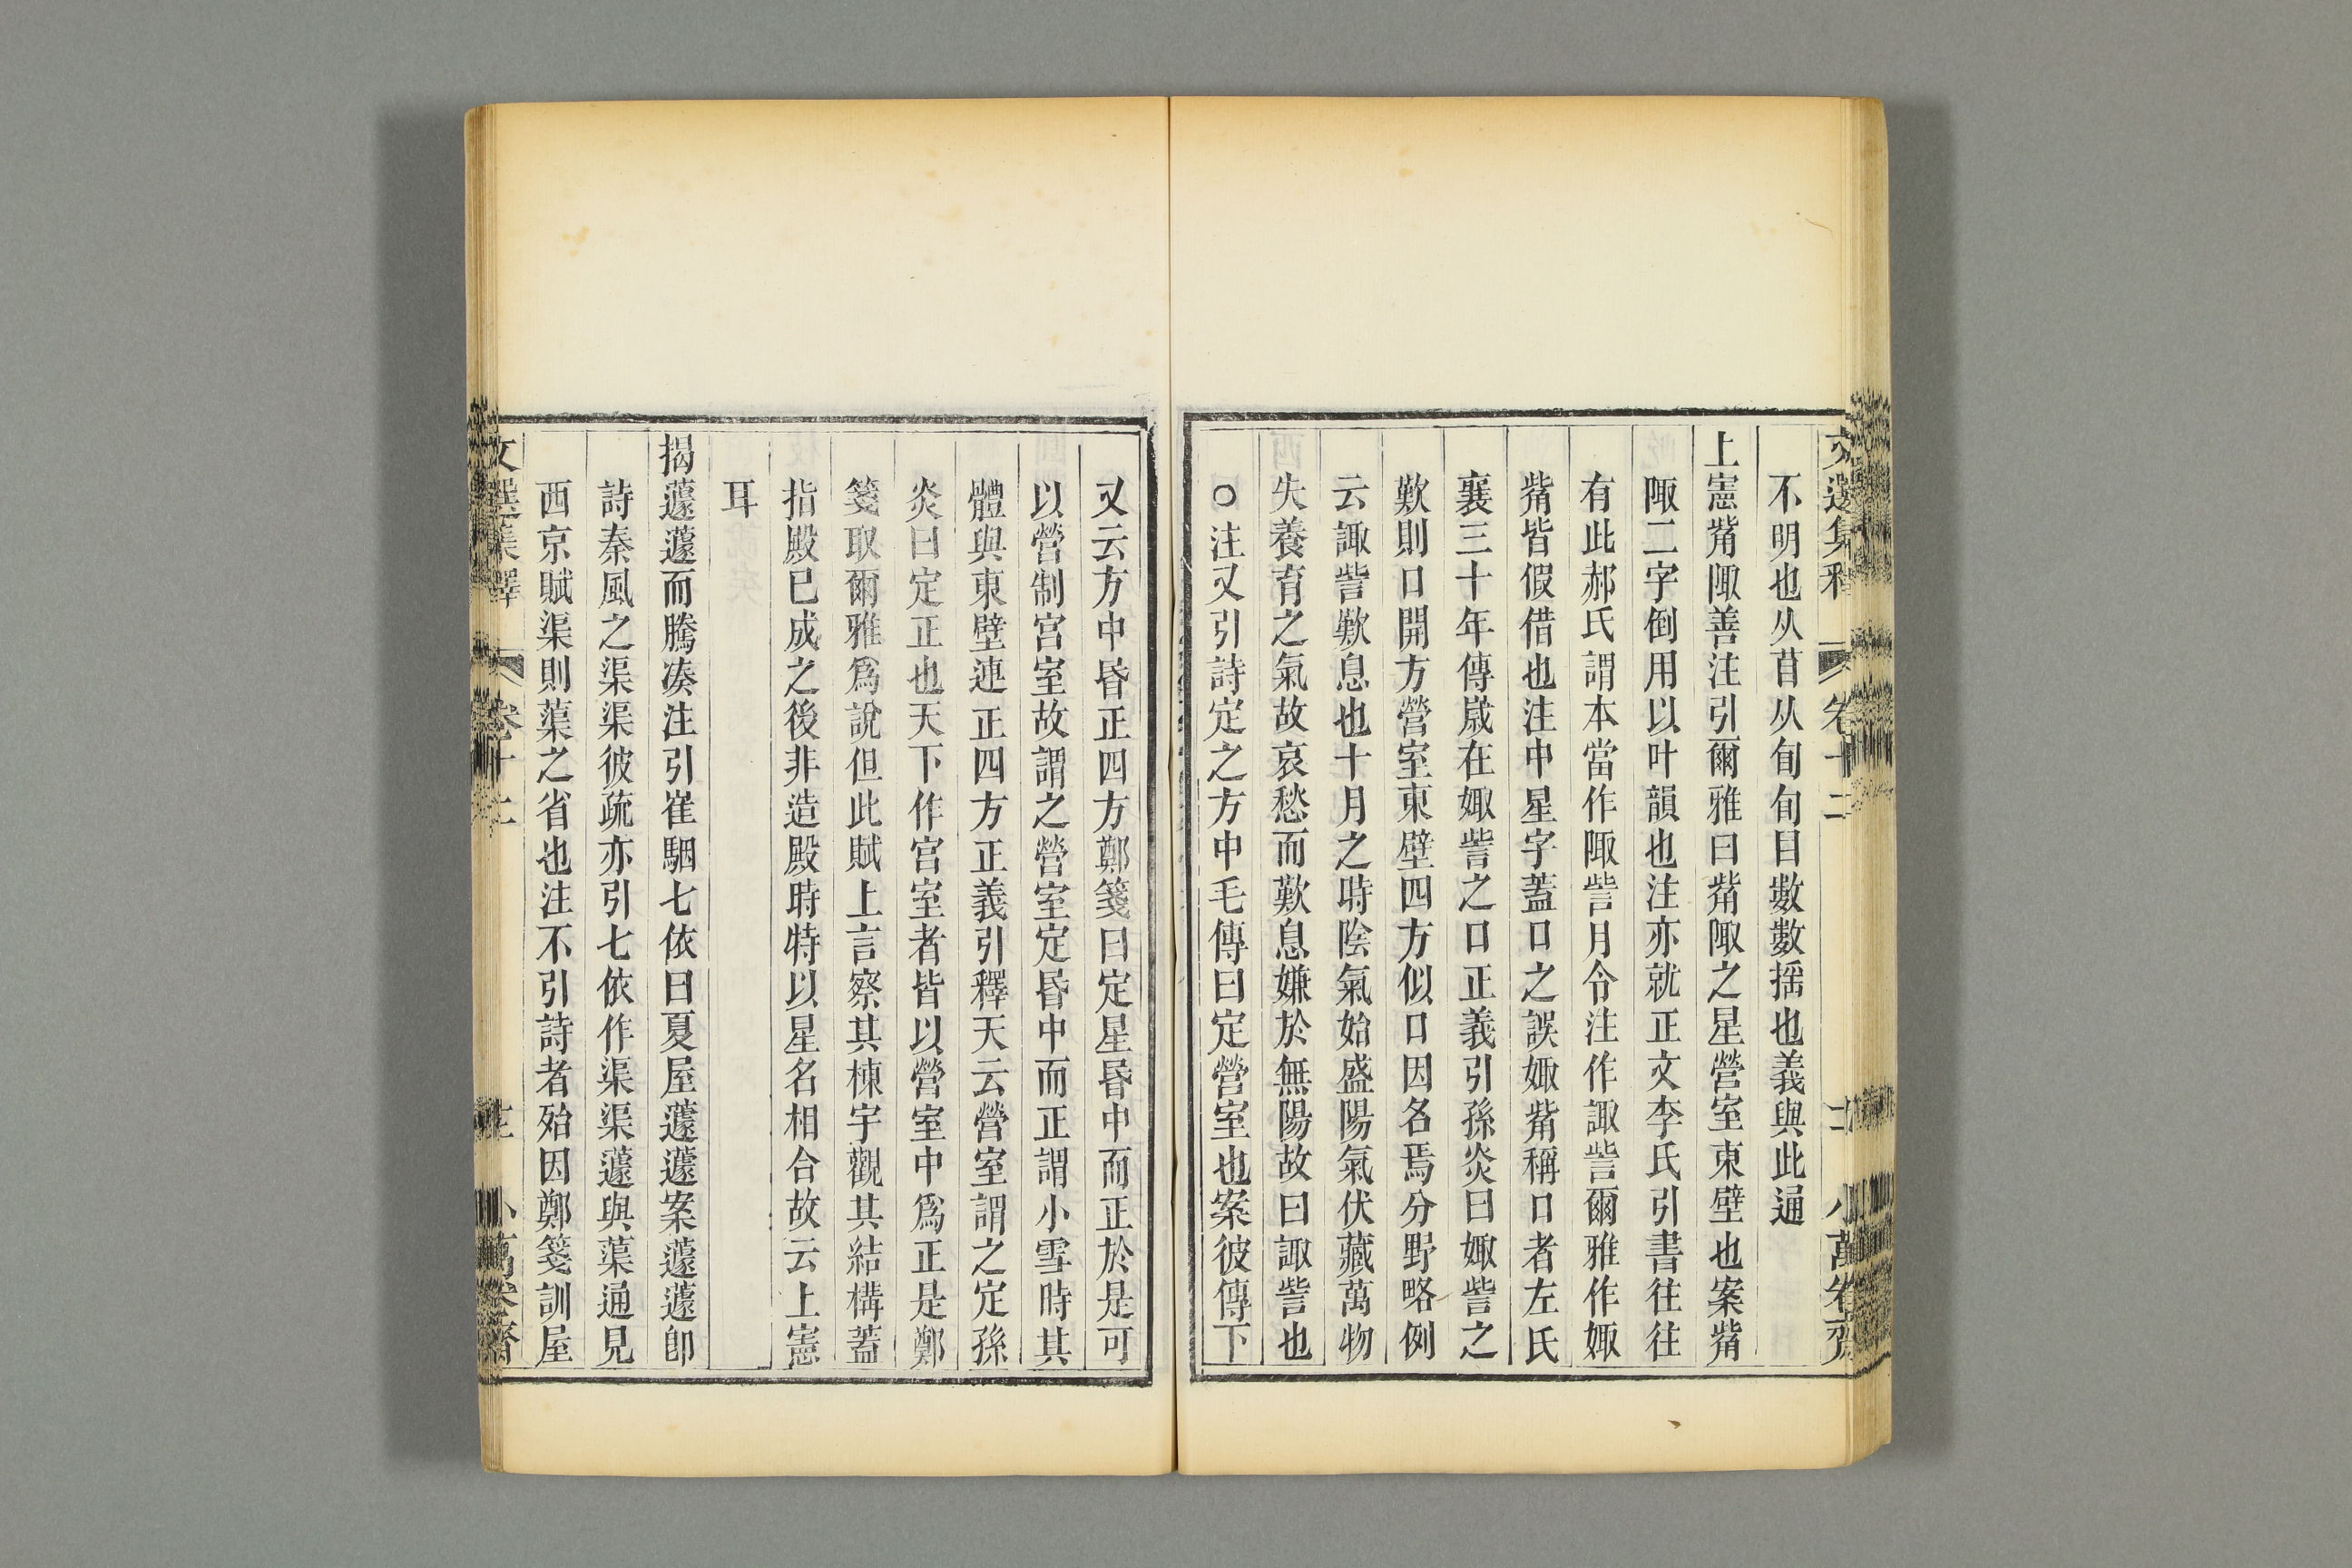 文選集釋 卷十二 小萬卷齋
不明也从苜从旬旬目數數揺也義與此通
上憲觜陬善注引爾雅曰觜陬之星營室東壁也案觜
陬二字倒用以叶韻也注亦就正文李氏引書往往
有此郝氏謂本當作陬訾月令注作諏訾爾雅作娵
觜皆假借也注中星字蓋口之誤娵觜稱口者左氏
襄三十年傳嵗在娵訾之口正義引孫炎曰娵訾之
歎則口開方營室東壁四方似口因名焉分野略例
云諏訾歎息也十月之時陰氣始盛陽氣伏藏萬物
失養育之氣故哀愁而歎息嫌於無陽故曰諏訾也
○注又引詩定之方中毛傳曰定營室也案彼傳下
又云方中昏正四方鄭箋曰定星昏中而正於是可
以營制宫室故謂之營室定昏中而正謂小雪時其
體與東壁連正四方正義引釋天云營室謂之定孫
炎曰定正也天下作宫室者皆以營室中爲正是鄭
箋取爾雅爲說但此賦上言察其棟宇觀其結構蓋
指殿已成之後非造殿時特以星名相合故云上憲
耳
揭蘧蘧而騰湊注引崔駰七依曰夏屋蘧蘧案蘧蘧卽
詩秦風之渠渠彼疏亦引七依作渠渠蘧與蕖通見
西京賦渠則蕖之省也注不引詩者殆因鄭箋訓屋
文選集釋 卷十二 小萬卷齋